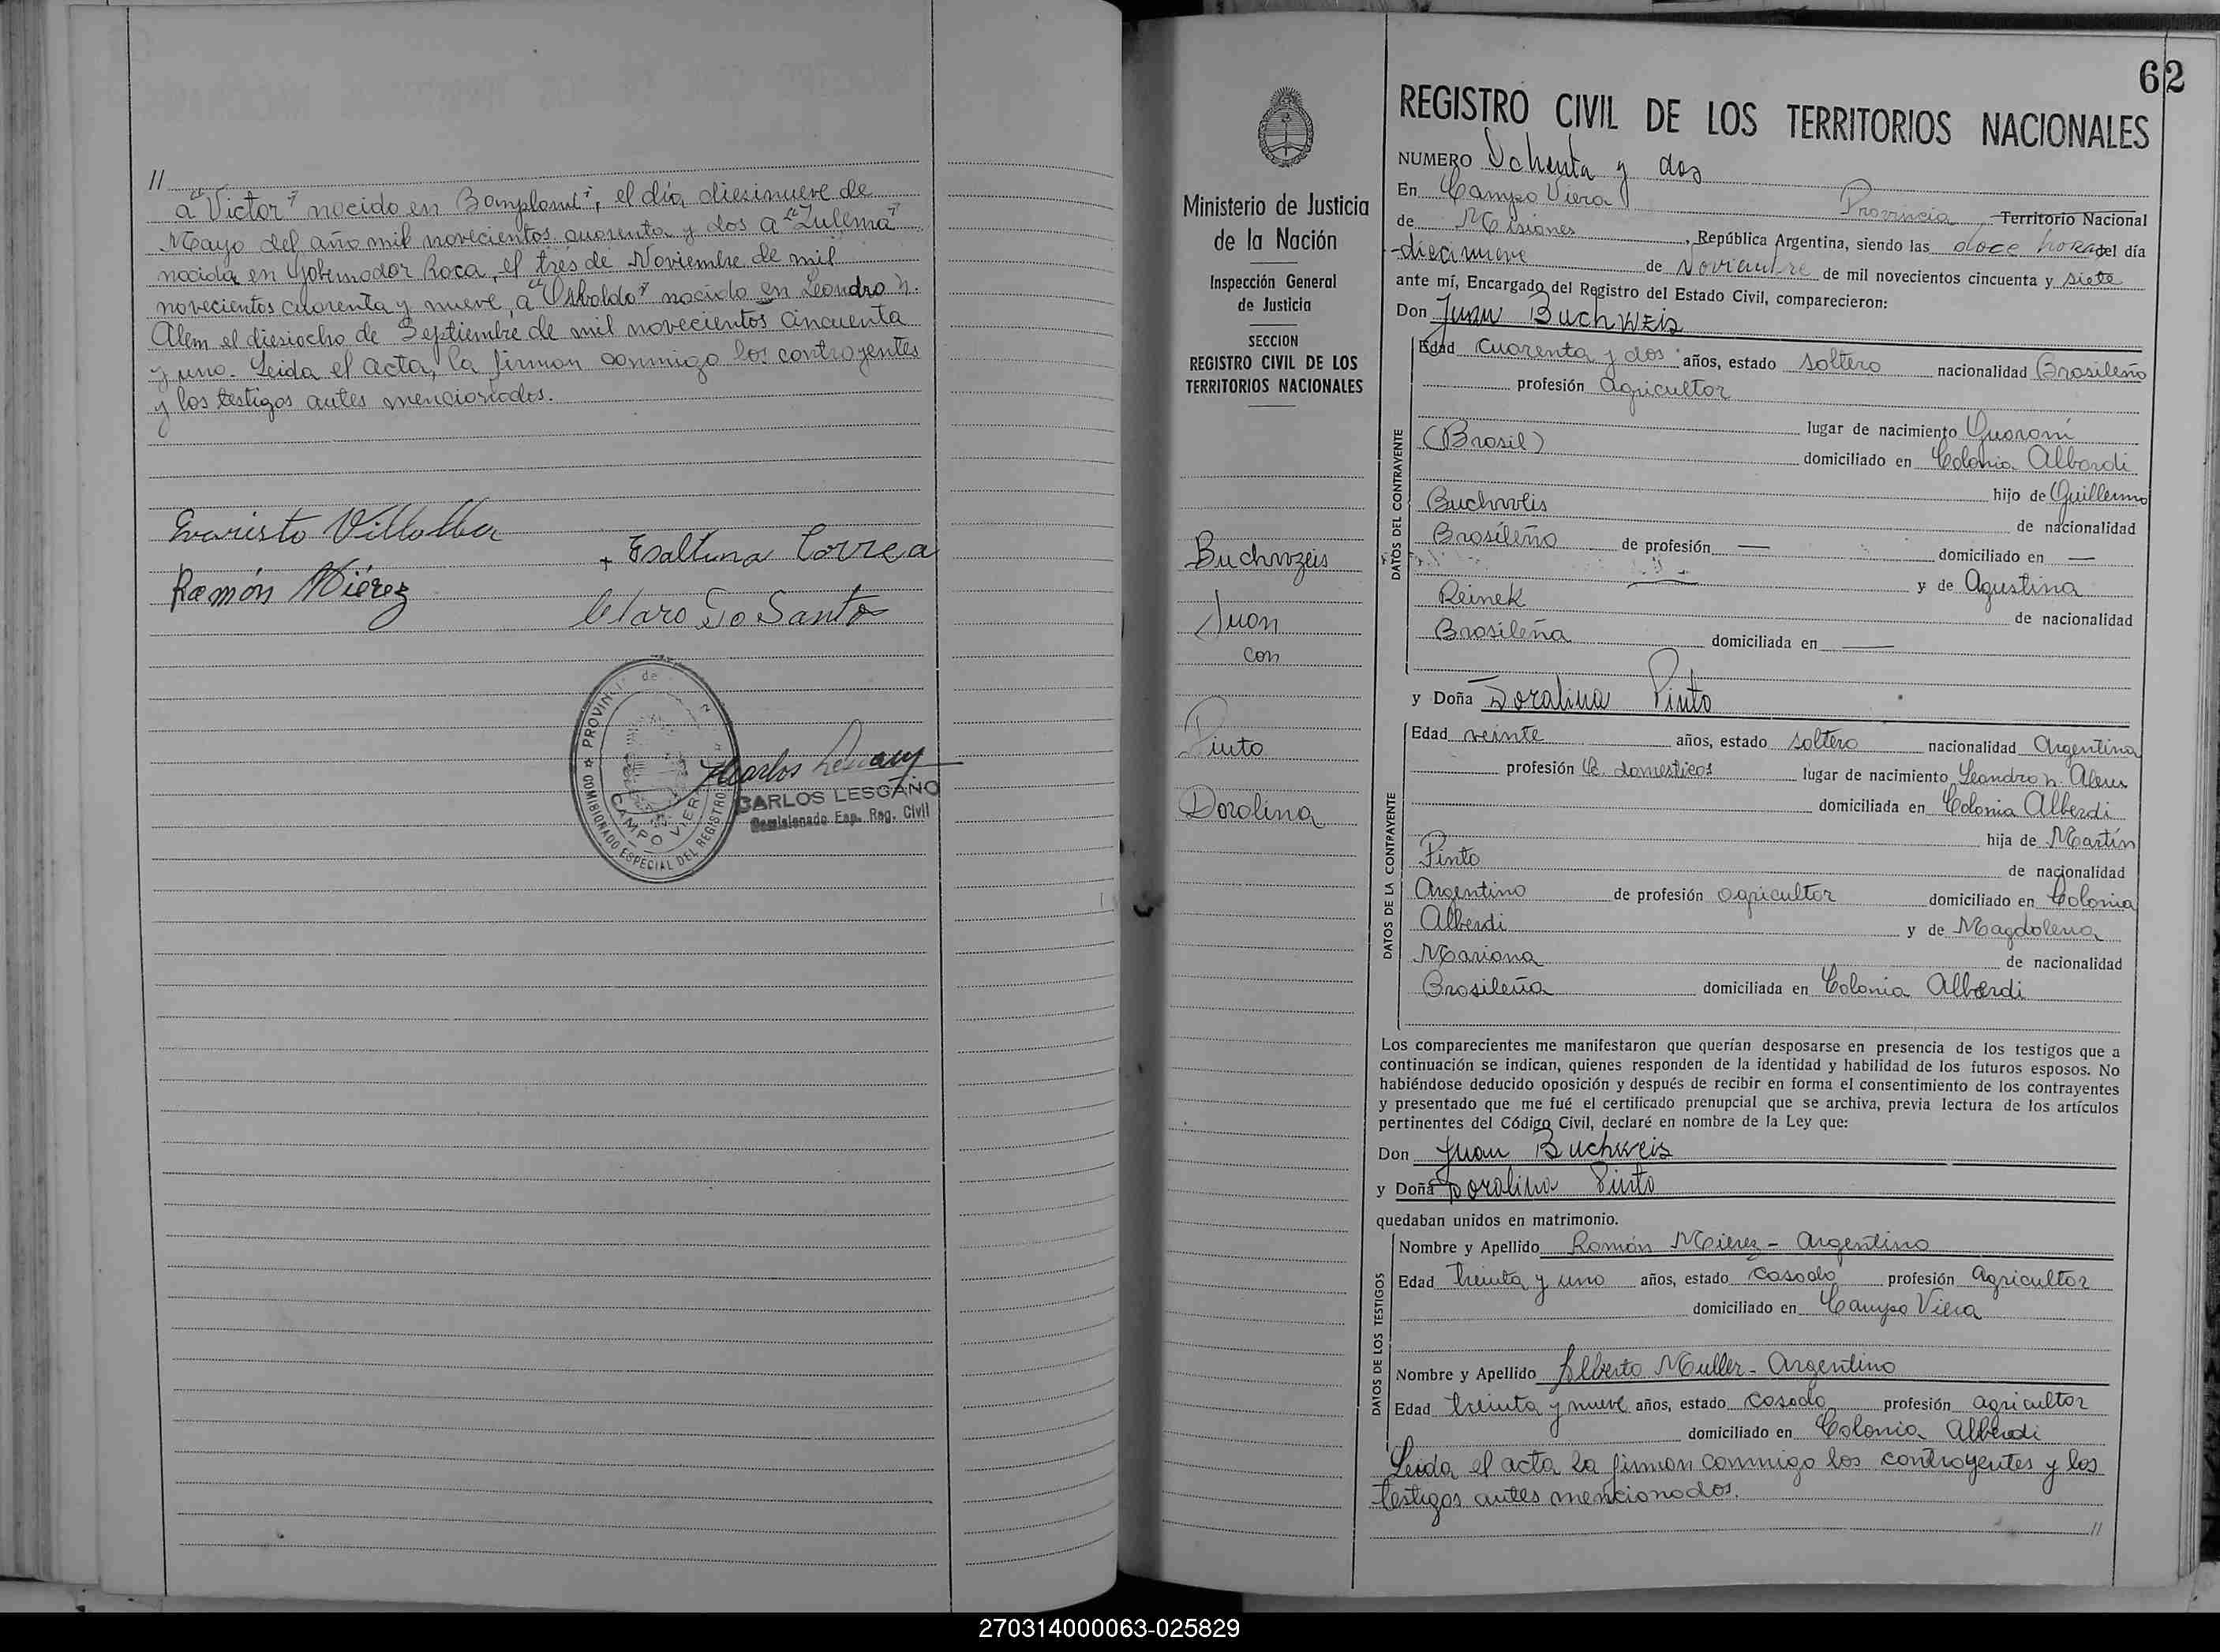 //
a "Victor" nacido en Bonpland, el día diesinueve de
Mayo del año mil novecientos cuarenta y dos a "Zulema"
nacida en Gobernador Roca, el tres de Noviembre de mil
novecientos cuarenta y nueve, a "Osbaldo" nacido en Leandro N.
Alem el diesiocho de Septiembre de mil novecientos cincuenta
y uno. Leida el acta, la firman conmigo los contrayentes
y los testigos antes mencionados.
Evaristo Villalba
+ Esaltina Correa
Ramón Miérez
Claro Do Santo
PROVINCIA de
COMISIONADO ESPECIAL DEL REGISTRO
CAMPO VIERA
Carlos Lescano
CARLOS LESCANO
Comisionado Esp. Reg. Civil
62
Ministerio de Justicia
de la Nación
Inspección General
de Justicia
SECCION
REGISTRO CIVIL DE LOS
TERRITORIOS NACIONALES
Buchweis
Juan
con
Pinto
Doralina
REGISTRO CIVIL DE LOS TERRITORIOS NACIONALES
NUMERO Ochenta y dos
En Campo Viera Provincia Territorio Nacional
de Misiones, República Argentina, siendo las doce horas del día
diecinueve de Noviembre de mil novecientos cincuenta y siete
ante mí, Encargado del Registro del Estado Civil, comparecieron:
Don Juan Buchweis
DATOS DEL CONTRAYENTE
Edad cuarenta y dos años, estado soltero nacionalidad Brasileño
profesión agricultor
lugar de nacimiento Guaraní
(Brasil) domiciliado en Colonia Alberdi
hijo de Guillermo
Buchweis de nacionalidad
Brasileño de profesión — domiciliado en —
y de Agustina
Reinek de nacionalidad
Brasileña domiciliada en —
y Doña Doralina Pinto
DATOS DE LA CONTRAYENTE
Edad veinte años, estado soltero nacionalidad Argentina
profesión Q. domesticos lugar de nacimiento Leandro N. Alem
domiciliada en Colonia Alberdi
hija de Martín
Pinto de nacionalidad
Argentino de profesión agricultor domiciliado en Colonia
Alberdi y de Magdalena
Mariana de nacionalidad
Brasileña domiciliada en Colonia Alberdi
Los comparecientes me manifestaron que querían desposarse en presencia de los testigos que a
continuación se indican, quienes responden de la identidad y habilidad de los futuros esposos. No
habiéndose deducido oposición y después de recibir en forma el consentimiento de los contrayentes
y presentado que me fué el certificado prenupcial que se archiva, previa lectura de los artículos
pertinentes del Código Civil, declaré en nombre de la Ley que:
Don Juan Buchweis
y Doña Doralina Pinto
quedaban unidos en matrimonio.
DATOS DE LOS TESTIGOS
Nombre y Apellido Ramón Mierez - Argentino
Edad treinta y uno años, estado casado profesión agricultor
domiciliado en Campo Viera
Nombre y Apellido Alberto Muller - Argentino
Edad treinta y nueve años, estado casado profesión agricultor
domiciliado en Colonia Alberdi
Leida el acta la firman conmigo los contrayentes y los
testigos antes mencionados.
//
270314000063-025829